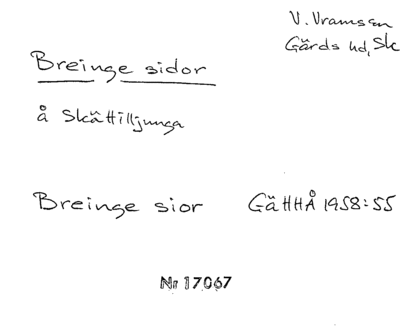 V. Vramsån
Gärds hd, Sk
Breinge sidor
å Skättilljunga
Breinge sior GäHHÅ 1958:55
Nr 17067